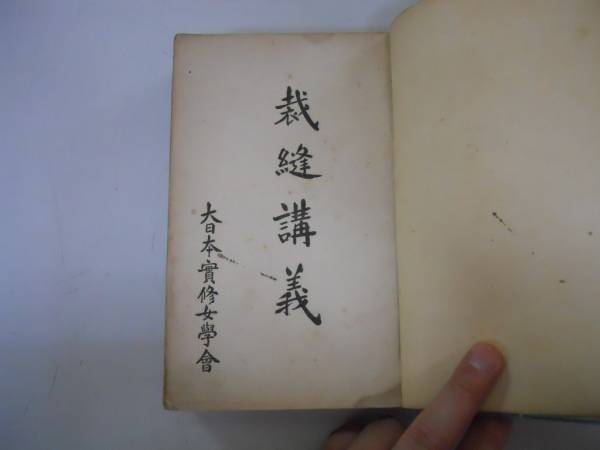 裁縫講義
大日本實修女學會